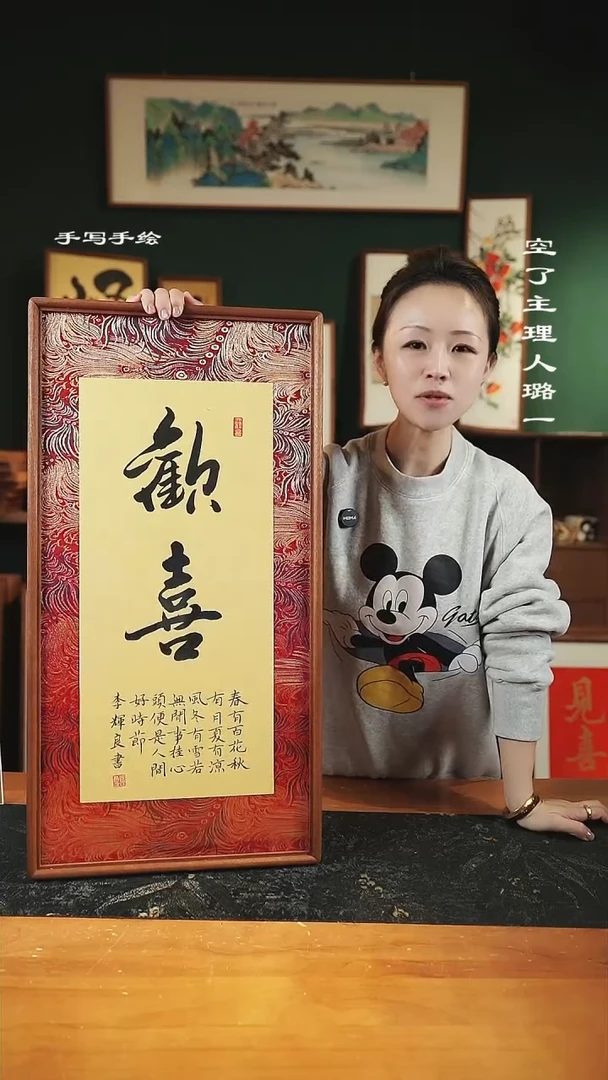 手写手绘
空了主理人璐一
歡
喜
春有百花秋
有月夏有凉
風冬有雪若
無閒事挂心
頭便是人間
好時節
李輝良書
見
喜